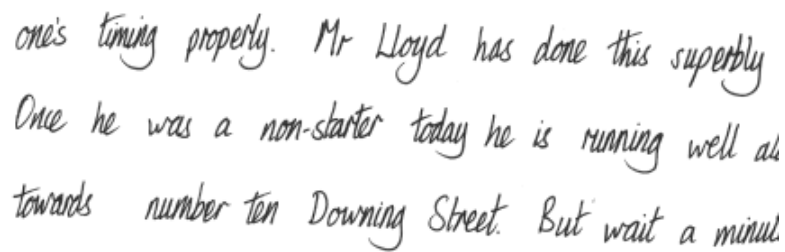 one's timing properly. Mr Lloyd has done this superbly
Once he was a non-starter today he is running well
towards number ten Downing Street. But wait a